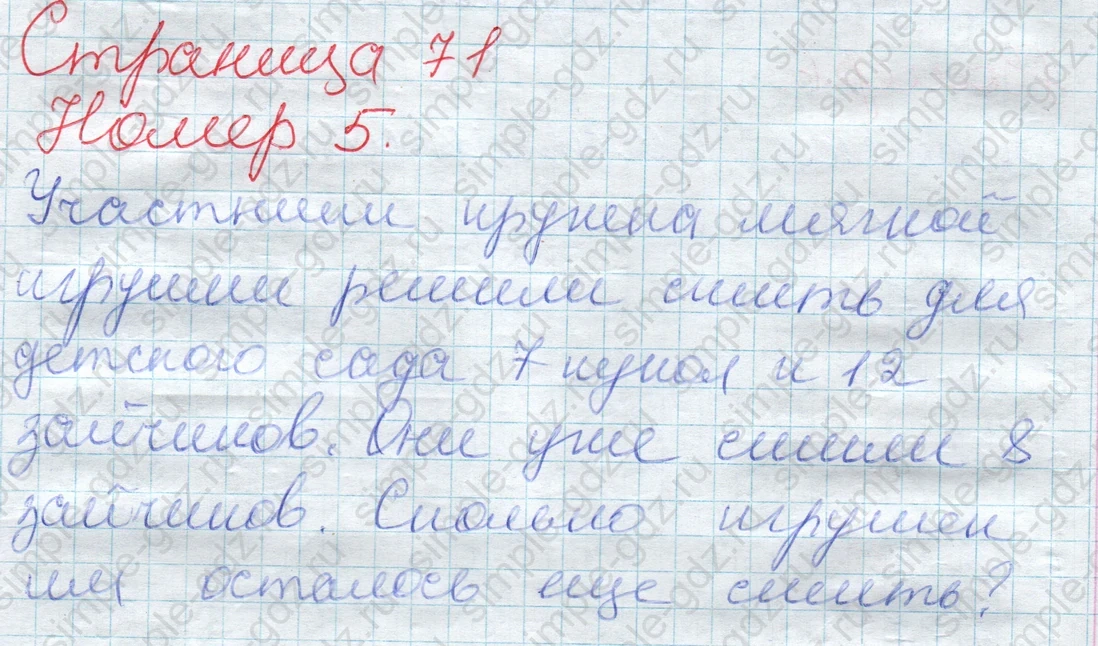 Страница 71
Номер 5.
Участники кружка мягкой
игрушки решили сшить для
детского сада 7 кукол и 12
зайчиков. Они уже сшили 8
зайчиков. Сколько игрушек
им осталось еще сшить?